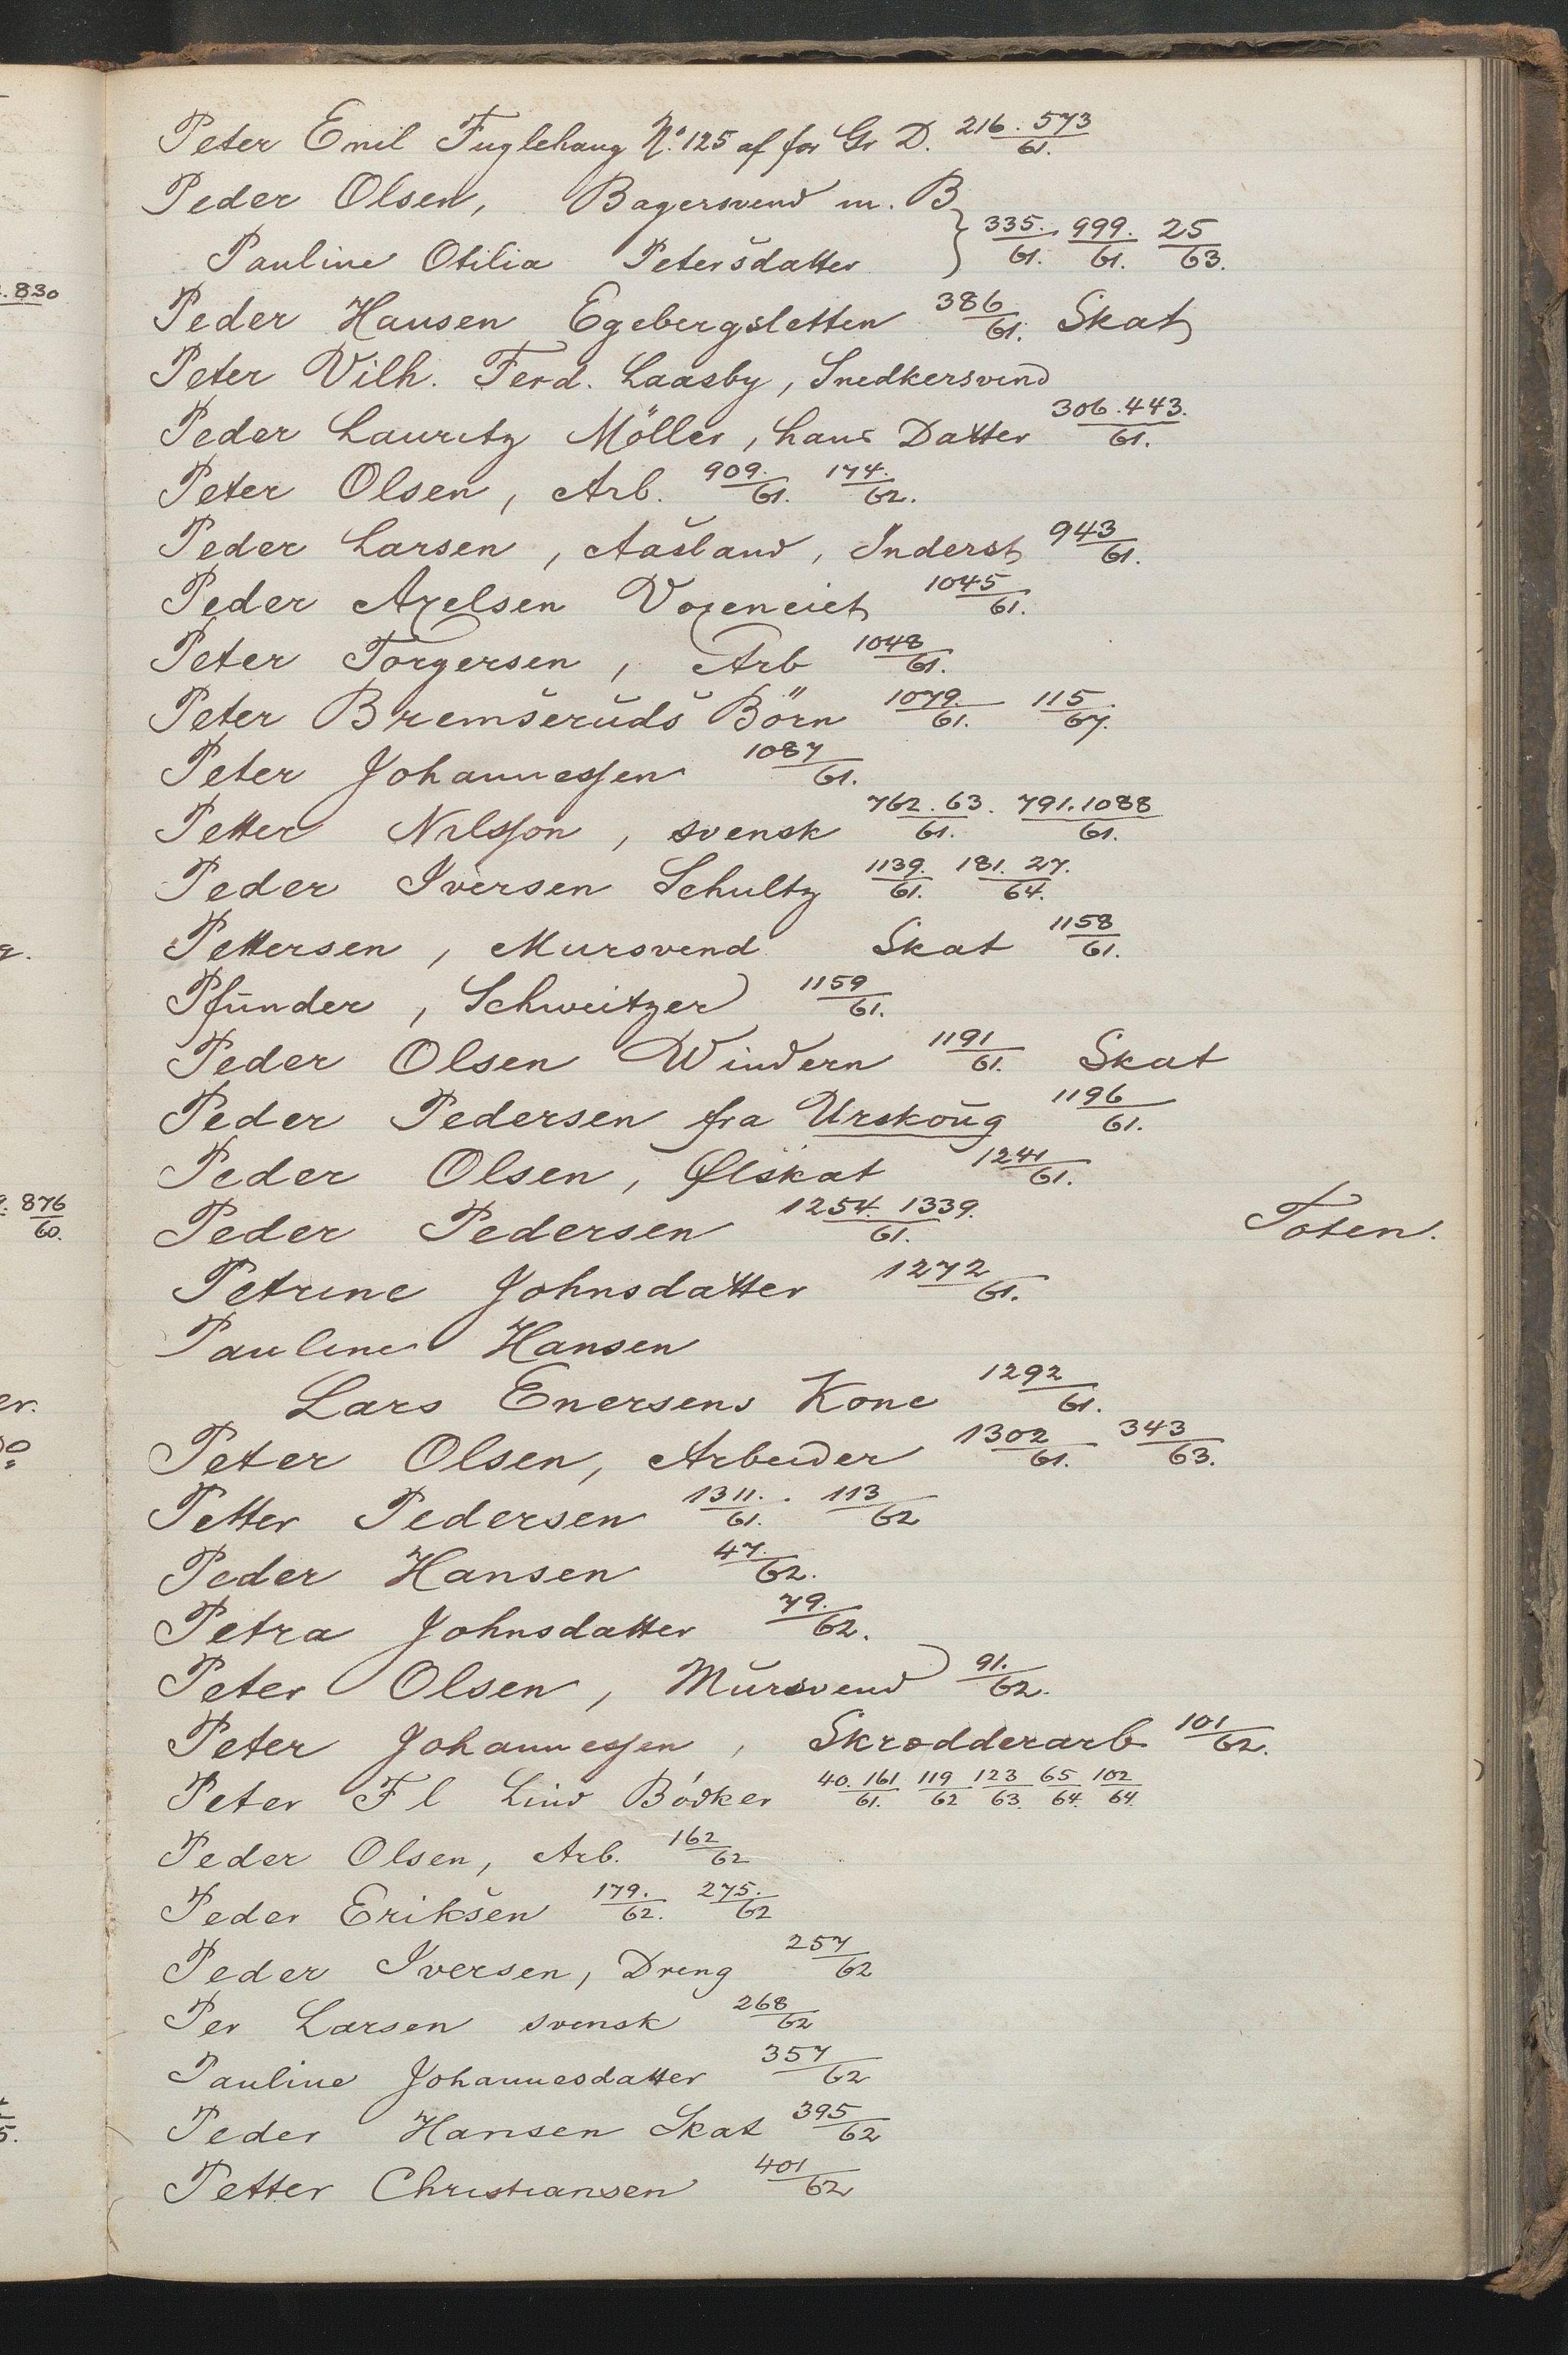 Peter Emil Fuglehaug No. 125 af for Gr D. 216. 573/61.
Peder Olsen, Bagersvend m. B
Pauline Otilia Petersdatter } 335./61. 999./61. 25/63.
Peder Hansen Egebergsletten 386/61. Skat
Peter Vilh. Ferd. Laasby, Snedkersvend
Peder Lauritz Möller, hans Datter 306. 443./61.
Peter Olsen, Arb. 909./61. 174./62.
Peder Larsen, Aasland, Inderst 943/61.
Peder Axelsen Voxeneiet 1045/61.
Peter Torgersen, Arb 1048/61.
Peter Bremseruds Börn 1079./61. 115./67.
Peter Johannessen 1087/61.
Petter Nilsson, svensk 762. 63./61. 791. 1088/61.
Peder Iversen Schultz 1139./61. 181. 27./64.
Pettersen, Mursvend Skat 1158/61.
Pfunder, Schweitzer 1159/61.
Peder Olsen Windern 1191/61. Skat
Peder Pedersen fra Urskoug 1196/61.
Peder Olsen, Ølskat 1241/61.
Peder Pedersen 1254. 1339./61. Toten.
Petrine Johnsdatter 1272/61.
Pauline Hansen
Lars Enersens Kone 1292/61.
Peter Olsen, Arbeider 1302/61. 343/63.
Petter Pedersen 1311./61. 113/62
Peder Hansen 47./62.
Petra Johnsdatter 79./62.
Peter Olsen, Mursvend 91./62.
Peter Johannessen, Skrædderarb 101/62.
Peter Fl Lind Bödker 40. 161/61. 119/62 123/63. 65/64. 102/64.
Peder Olsen, Arb. 162/62
Peder Eriksen 179./62. 275./62
Peder Iversen, Dreng 257/62
Per Larsen svensk 268/62
Pauline Johannesdatter 357/62
Peder Hansen Skat 395/62
Petter Christiansen 401/62